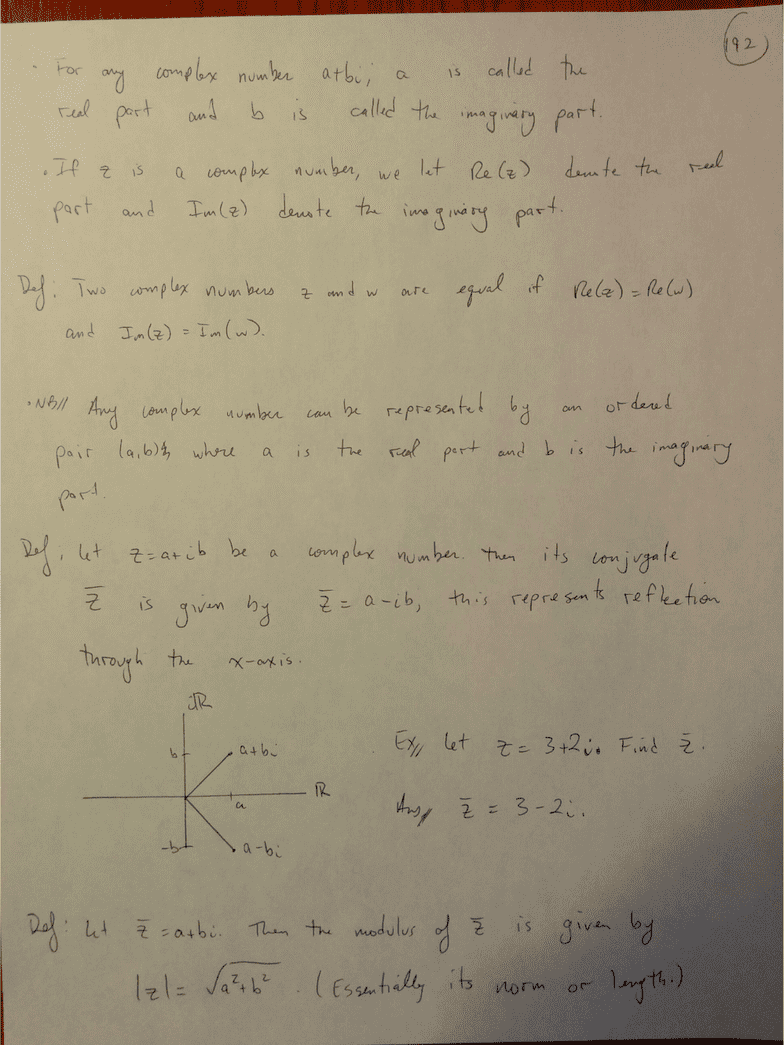 192
· For any complex number a+bi, a is called the
real part and b is called the imaginary part.
· If z is a complex number, we let Re(z) denote the real
part and Im(z) denote the imaginary part.
Def: Two complex numbers z and w are equal if Re(z) = Re(w)
and Im(z) = Im(w).
· NB// Any complex number can be represented by an ordered
pair (a,b) where a is the real part and b is the imaginary
part.
Def: Let z=a+ib be a complex number. Then its conjugate
z̅ is given by z̅ = a-ib, this represents reflection
through the x-axis.
iℝ
b a+bi
ℝ
a
-b a-bi
Ex// Let z = 3+2i. Find z̅.
Ans// z̅ = 3-2i.
Def: Let z̅ = a+bi. Then the modulus of z̅ is given by
|z| = √(a²+b²). (Essentially its norm or length.)